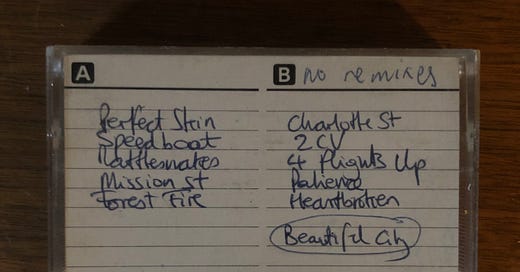 A
Perfect Skin
Speedboat
Rattlesnakes
Mission St
Forest Fire
B no remixes
Charlotte St
2CV
4 Flights Up
Patience
Heartbroken
Beautiful City